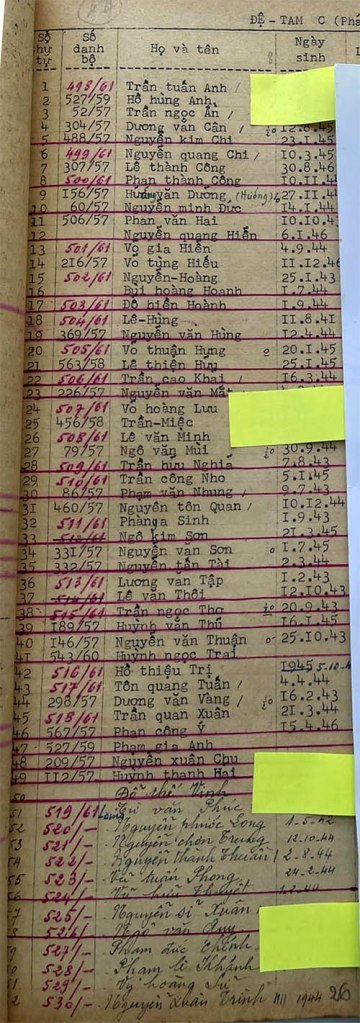 ĐỆ-TAM C (Pha
Số thứ tự Số danh bộ Họ và tên Ngày sinh
1 498/61 Trần tuấn Anh
2 527/59 Hồ hùng Anh
3 52/57 Trần ngọc Ẩn
4 304/57 Dương văn Cân 12.8.45
5 488/57 Nguyễn kim Chi 23.I.45
6 499/61 Nguyễn quang Chi I0.3.45
7 307/57 Lê thành Công 30.8.46
8 500/61 Phan thành Công I0.II.4
9 I56/57 văn Dương (Hương) 27.II.4
10 60/57 Nguyễn minh Đức I4.I.44
11 506/57 Phan văn Hai I0.I0.4
12 Nguyễn quang Hiển 6.I.46
13 501/61 Võ gia Hiển 4.9.44
14 2I6/57 Võ tùng Hiếu II.I2.46
15 502/61 Nguyễn-Hoàng 25.I.43
16 Bùi hoàng Hoanh I.7.44
17 503/61 Đỗ hiển Hoành I.9.44
18 504/61 Lê-Hùng II.8.4I
19 369/57 Nguyễn văn Hùng I2.4.44
20 505/61 Võ thuận Hưng 20.I.45
21 563/58 Lê thiện Hưu 25.I.45
22 506/61 Trần cao Khai I6.3.44
23 226/57 Nguyễn văn
24 507/61 Võ hoàng Lưu
25 456/58 Trần-Miệc
26 508/61 Lê văn Minh
27 79/57 Ngô văn Mùi 30.9.44
28 509/61 Trần hưu Nghiã 7.8.43
29 510/61 Trần công Nho 5.I.45
30 86/57 Phạm văn Nhung 9.7.43
3I 460/57 Nguyễn tôn Quan I0.I2.44
32 511/61 Phan Sinh I.9.43
33 512/61 Ngô kim Sơn 2I.3.45
34 33I/57 Nguyễn văn Sơn I.7.45
35 332/57 Nguyễn tấn Tài 2.3.44
36 513/61 Lương văn Tập I.2.43
37 514/61 Lê văn Thôi I2.I0.43
38 515/61 Trần ngọc Thơ 20.9.43
39 I89/57 Huỳnh văn Thú I6.I.45
40 I46/57 Nguyễn văn Thuận 25.I0.43
41 543/60 Huỳnh ngọc Trai
42 516/61 Hồ thiệu Trị I945 5-10-4
43 517/61 Tôn quang Tuấn 4.4.44
44 298/57 Dương văn Vàng I6.2.43
45 518/61 Trần quan Xuân 2I.3.44
46 567/57 Phan công Ý I5.4.46
47 527/59 Phạm gia Anh
48 209/57 Nguyễn xuân Chu
49 II2/57 Huỳnh thanh Hai
50 Đỗ thế Vinh
51 519/61 văn Phúc
52 520/- Nguyễn phước Long 1-5-42
53 521/- Nguyễn chơn Trung 12-10-44
54 522/- Nguyễn thanh Thuần 2-8-44
55 523/- Vũ tuấn Phong 24-2-44
56 524/- Vũ hữu 1-2-44
57 525/- Nguyễn sĩ Xuân
58 526/- Ngô văn Huy
527/- Phạm đức Thịnh
528/- Phạm lê Khánh
529/- Vỹ hoàng
2 530/- Nguyễn Xuân Trinh 1944
26